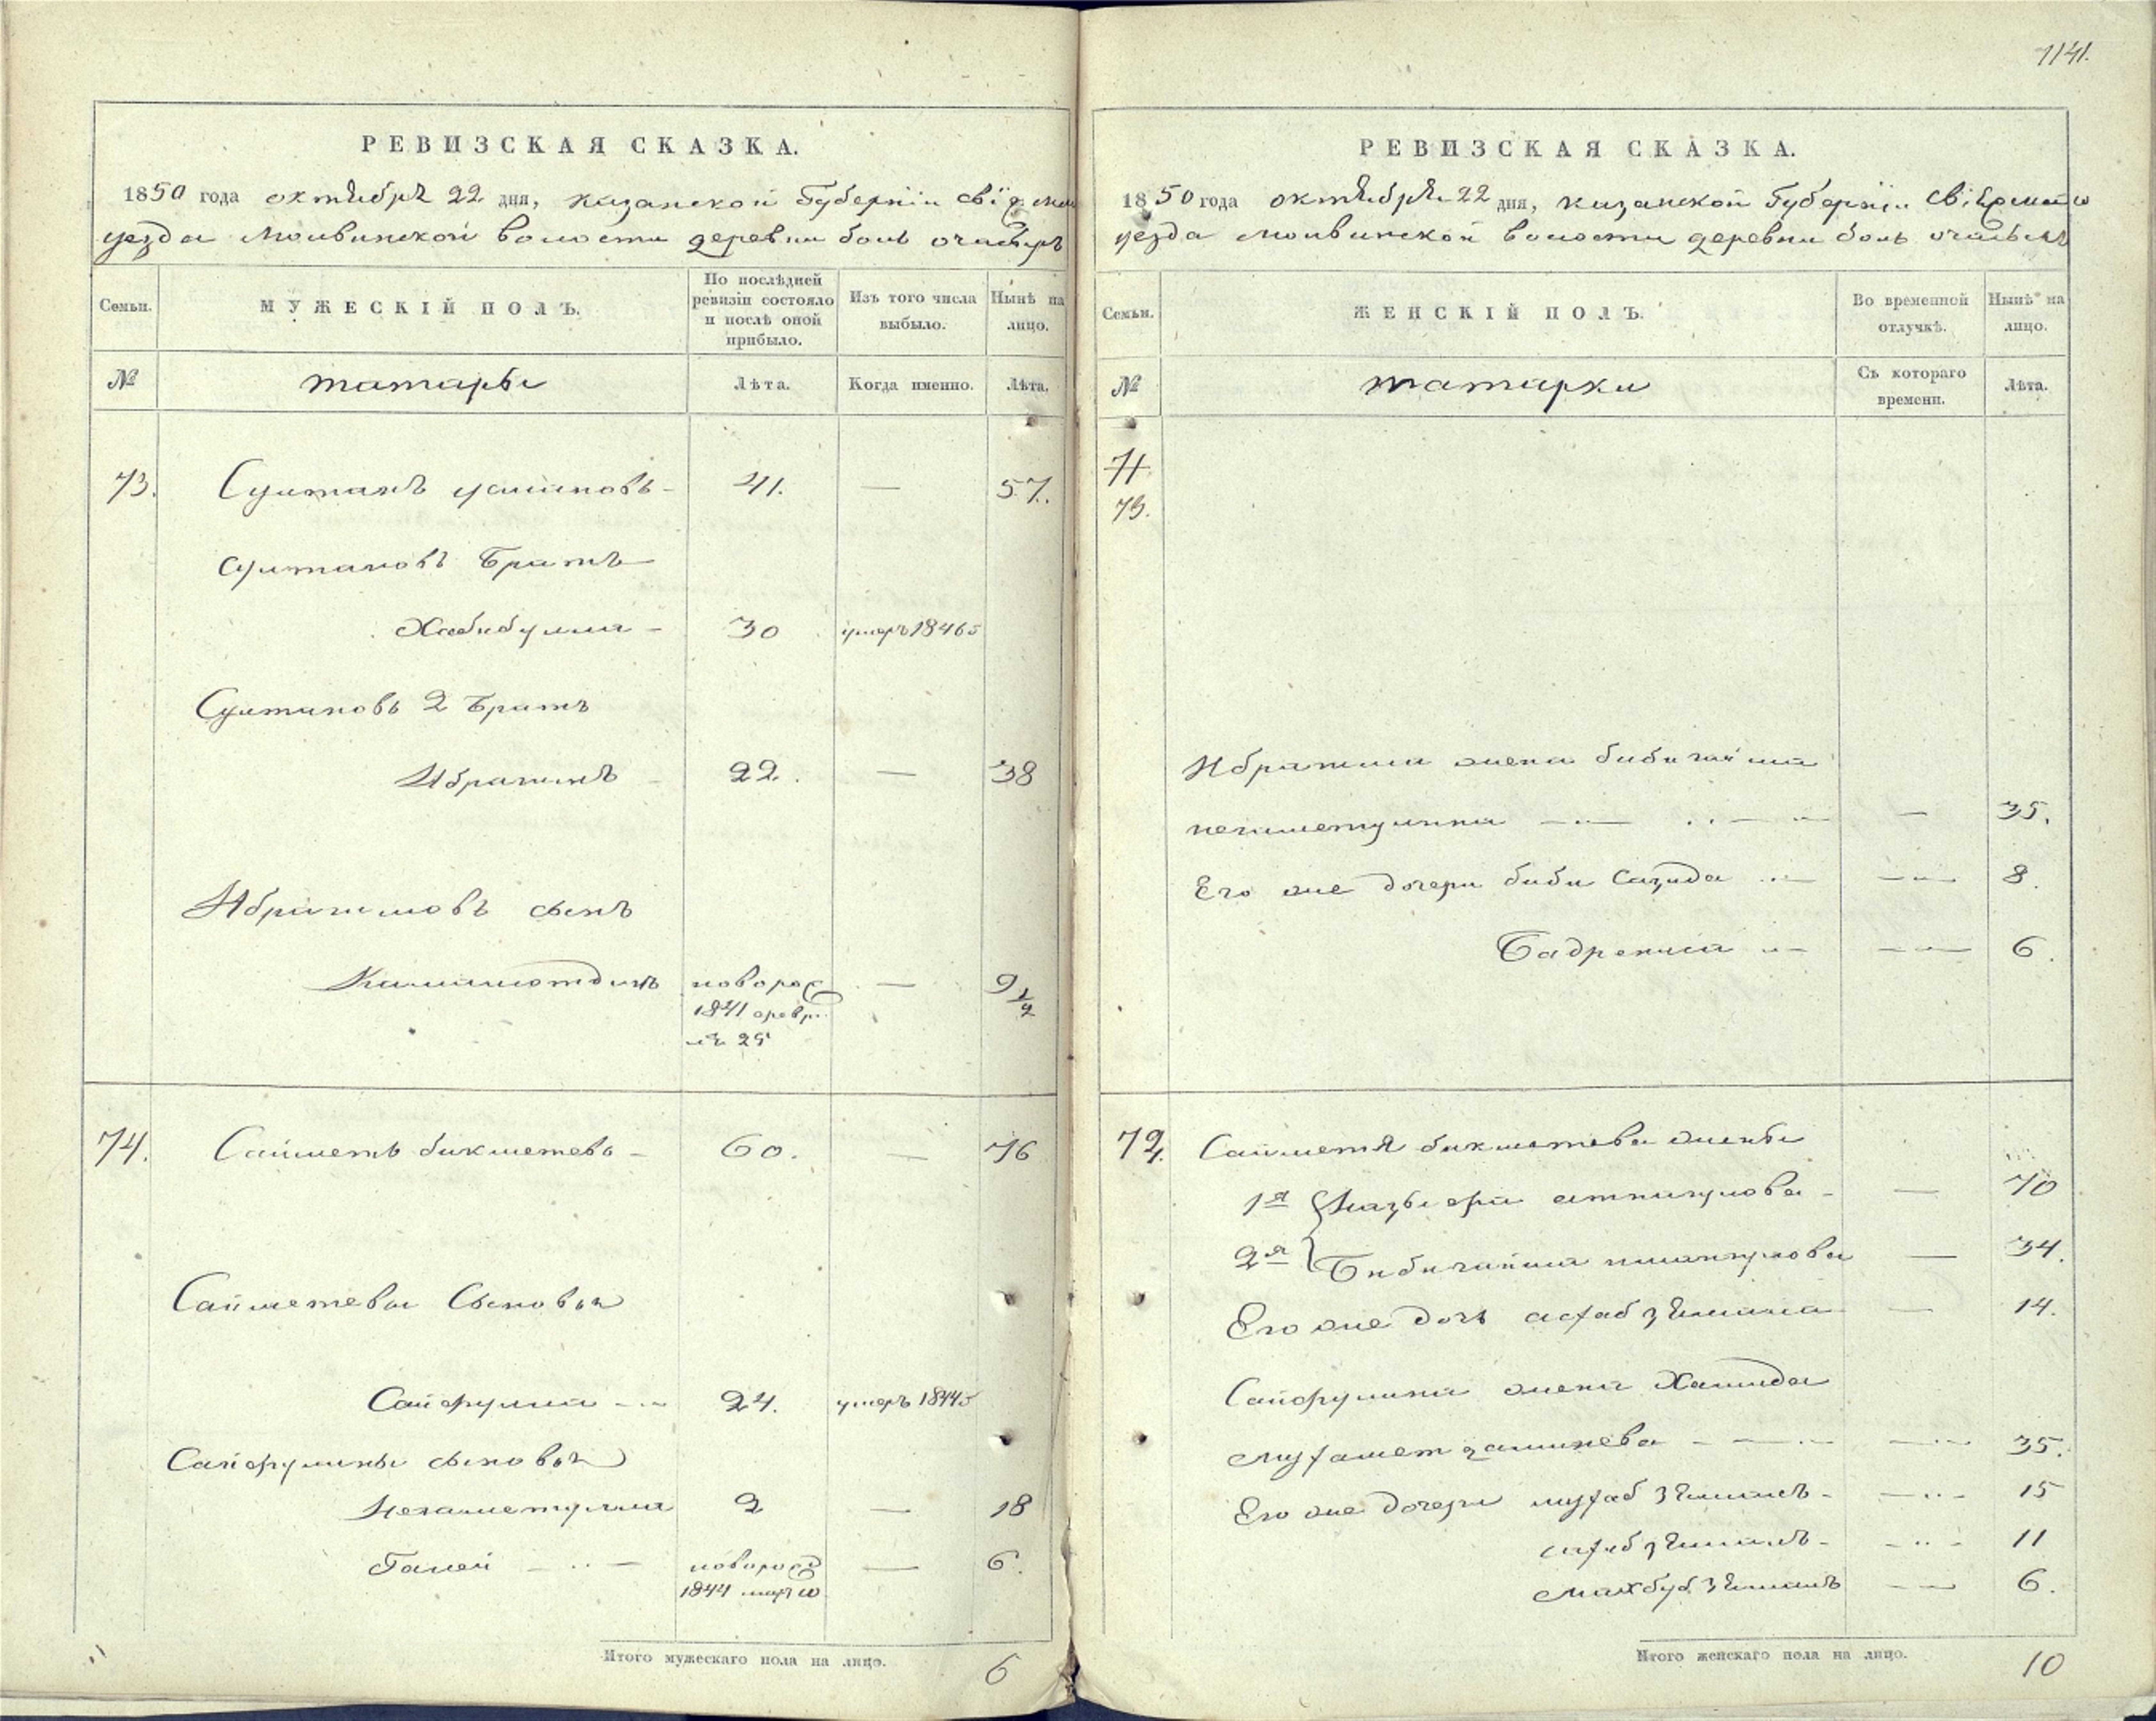 1141.
РЕВИЗСКАЯ СКАЗКА.
1850 года октября 22 дня, казанской Губерніи
уезда Молвинской волости деревни боль
Семьи.
МУЖЕСКІЙ ПОЛЪ.
По послѣдней ревизіи состояло и послѣ оной прибыло.
Изъ того числа выбыло.
Нынѣ на лицо.
№
татары
Лѣта.
Когда именно.
Лѣта.
73. Султанъ 41. — 57.
Султановъ братъ
Хабибулла 30 умеръ 1846
Султановъ 2 братъ
Ибрагимъ 22. — 38
Ибрагимовъ сынъ
новорож — 9 1/2
1841
25
74. Сайметь бикметевъ 60. — 76
Сайметевы Сыновья
Сайфулла 24. умеръ 1844
Сайфулины сыновья
Незаметулла 2 — 18
Галей новорож — 6.
1844 марта
Итого мужескаго пола на лицо. 6
РЕВИЗСКАЯ СКАЗКА.
1850 года октября 22 дня, казанской Губерніи
уезда Молвинской волости деревни боль
Семьи.
ЖЕНСКІЙ ПОЛЪ.
Во временной отлучкѣ.
Нынѣ на лицо.
№
татарки
Съ котораго времени.
Лѣта.
71
73.
Ибрагима жена бибигайша
— 35.
Его же дочери биби Сагида 8.
6.
Сайметя бикметева жены
1я — 70
2я Бибигайша — 34.
Его же дочь — 14.
Сайфулина жена Хамида
35.
Его же дочери 15
11
6.
Итого женскаго пола на лицо. 10